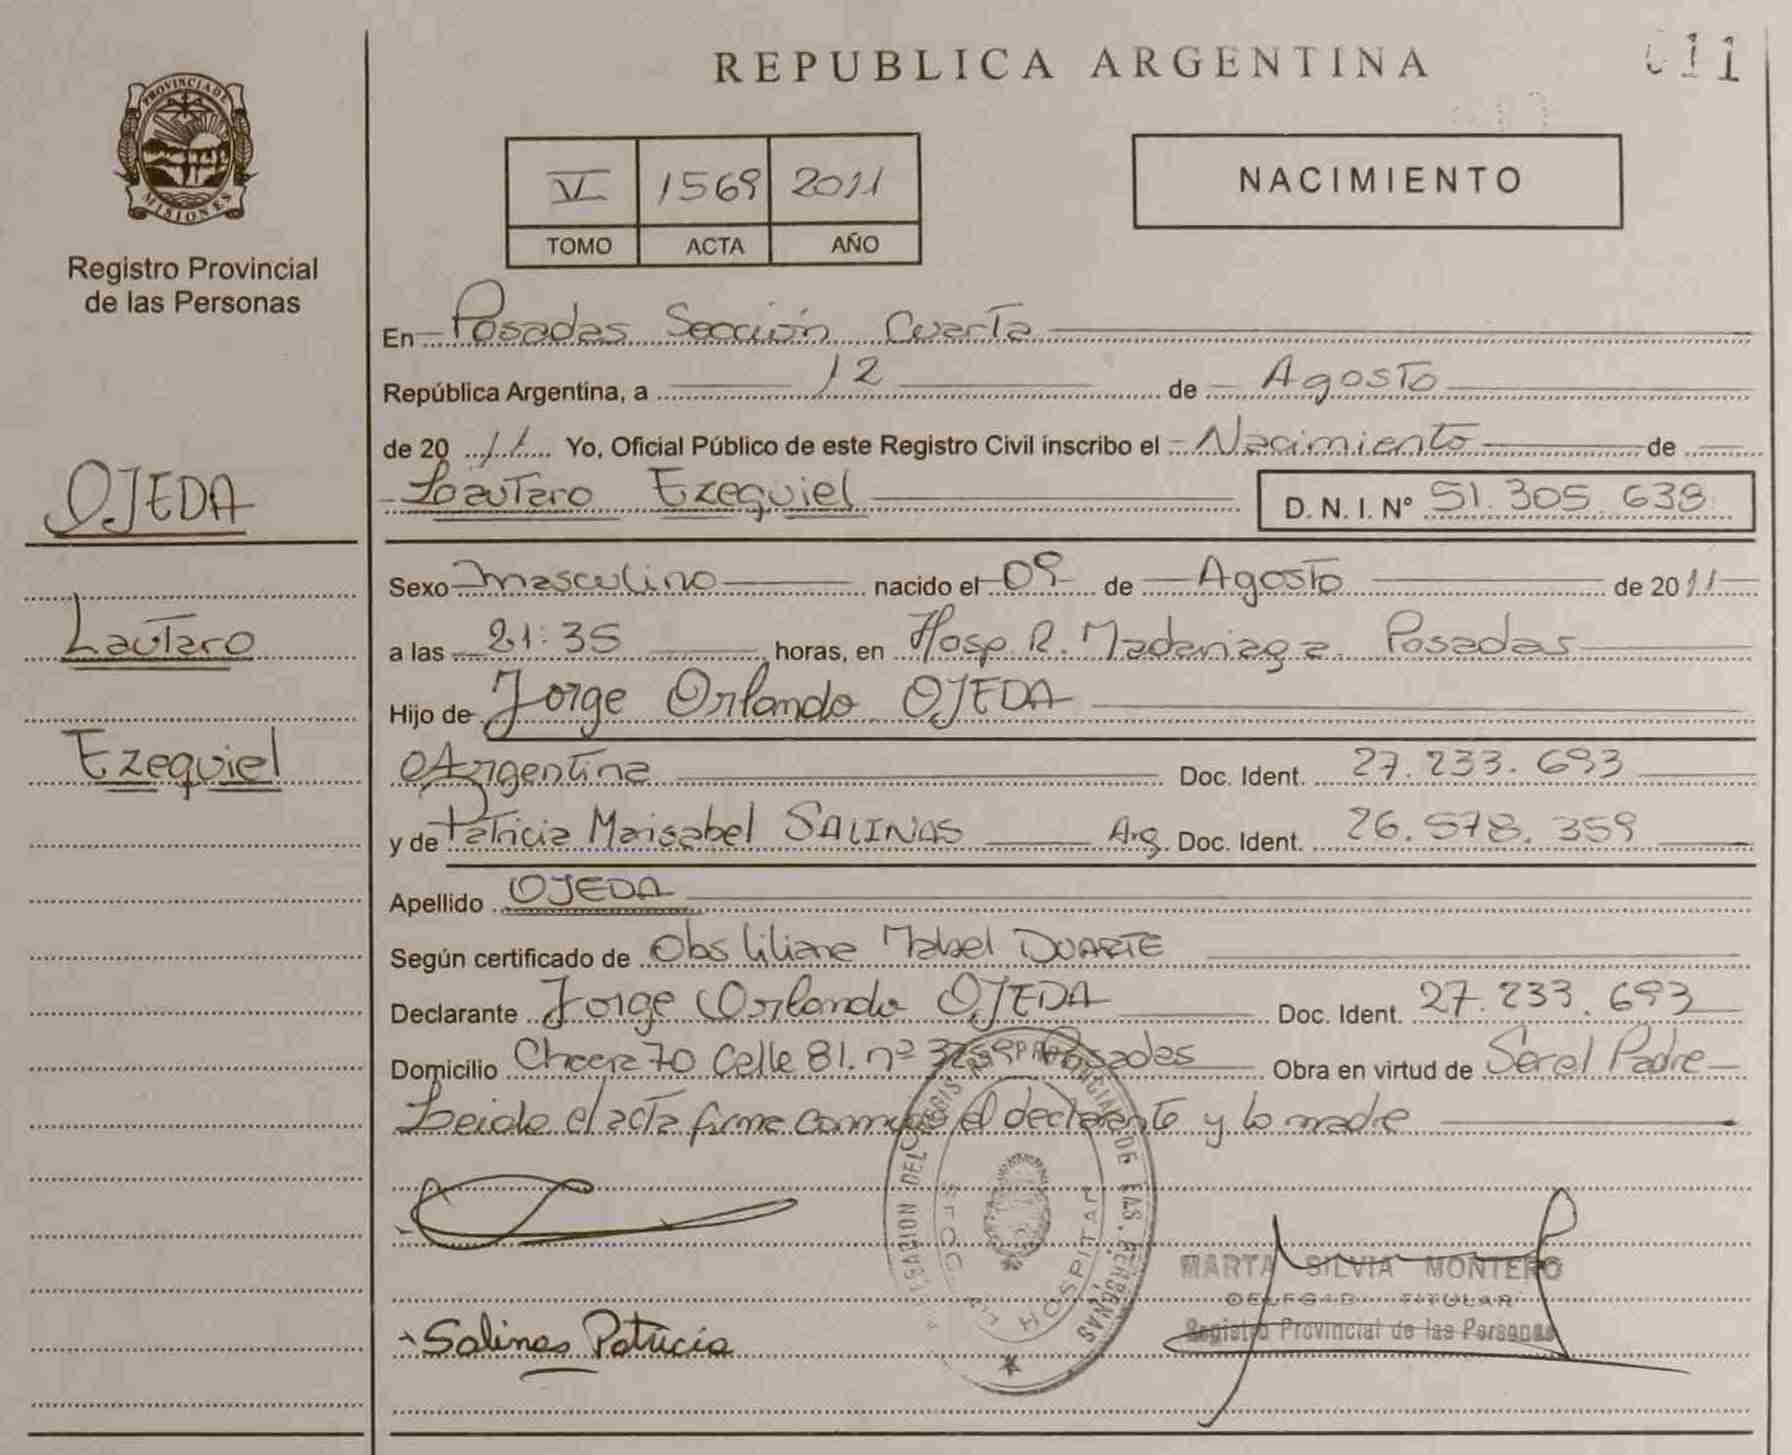 REPUBLICA ARGENTINA
011
PROVINCIA DE
MISIONES
Registro Provincial
de las Personas
V 1569 2011
TOMO ACTA AÑO
NACIMIENTO
En Posadas Sección Cuarta
República Argentina, a 12 de Agosto
de 2011 Yo, Oficial Público de este Registro Civil inscribo el Nacimiento de
Lautaro Ezequiel D. N. I. Nº 51.305.638
OJEDA
Lautaro
Ezequiel
Sexo masculino nacido el 09 de Agosto de 2011
a las 21:35 horas, en Hosp R. Madariaga Posadas
Hijo de Jorge Orlando OJEDA
Argentina Doc. Ident. 27.233.693
y de Patricia Marisabel SALINAS Arg. Doc. Ident. 26.578.359
Apellido OJEDA
Según certificado de Obs Liliana Mabel DUARTE
Declarante Jorge Orlando OJEDA Doc. Ident. 27.233.693
Domicilio Chacra 70 Calle 81. nº Posadas Obra en virtud de Ser el Padre
Leida el acta firma conmigo el declarante y la madre
HOSPITAL
MARTA SILVIA MONTERO
TITULAR
Registro Provincial de las Personas
Salinas Patricia